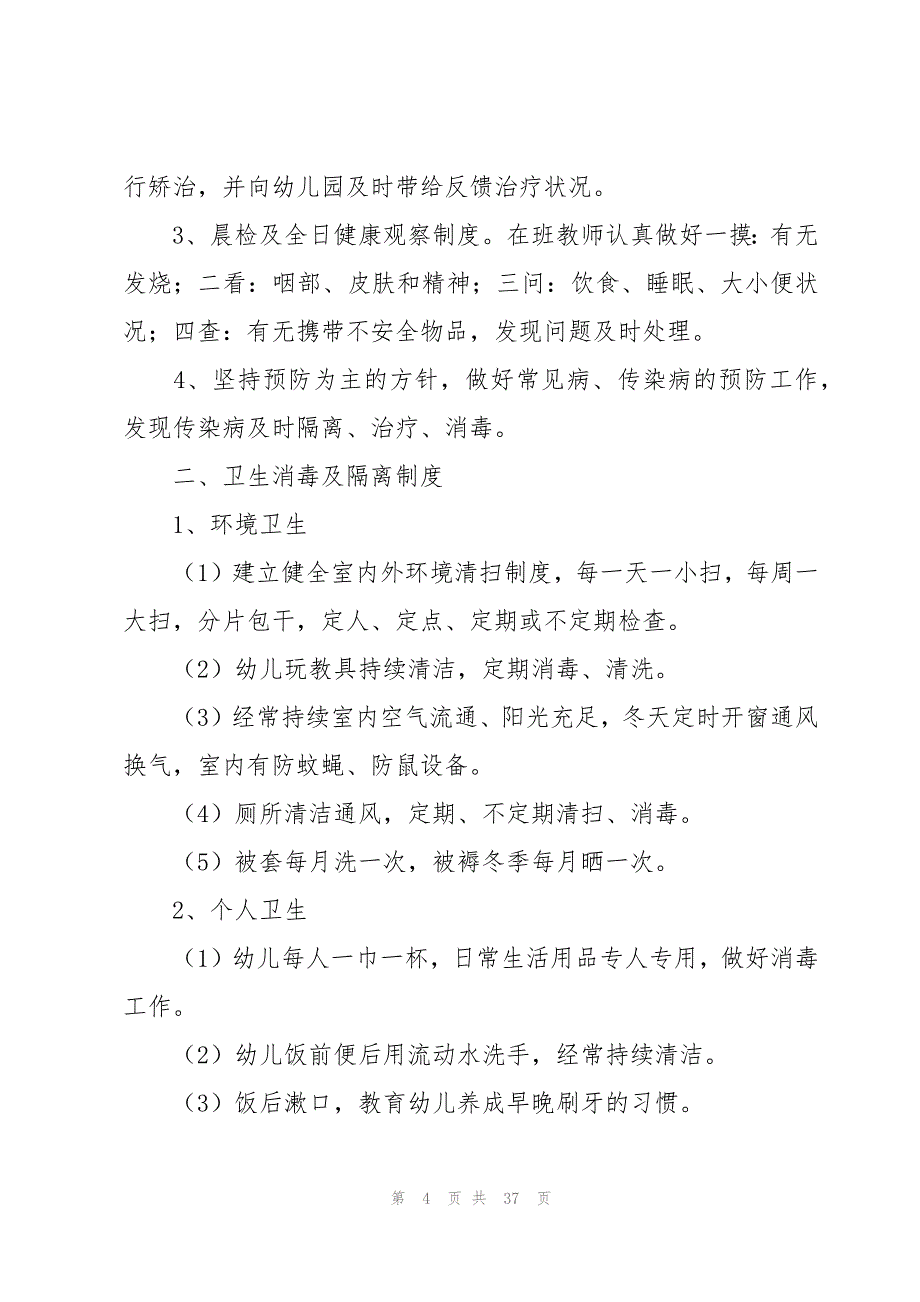 行矫治，并向幼儿园及时带给反馈治疗状况。
3、晨检及全日健康观察制度。在班教师认真做好一摸：有无
发烧；二看：咽部、皮肤和精神；三问：饮食、睡眠、大小便状
况；四查：有无携带不安全物品，发现问题及时处理。
4、坚持预防为主的方针，做好常见病、传染病的预防工作，
发现传染病及时隔离、治疗、消毒。
二、卫生消毒及隔离制度
1、环境卫生
（1）建立健全室内外环境清扫制度，每一天一小扫，每周一
大扫，分片包干，定人、定点、定期或不定期检查。
（2）幼儿玩教具持续清洁，定期消毒、清洗。
（3）经常持续室内空气流通、阳光充足，冬天定时开窗通风
换气，室内有防蚊蝇、防鼠设备。
（4）厕所清洁通风，定期、不定期清扫、消毒。
（5）被套每月洗一次，被褥冬季每月晒一次。
2、个人卫生
（1）幼儿每人一巾一杯，日常生活用品专人专用，做好消毒
工作。
（2）幼儿饭前便后用流动水洗手，经常持续清洁。
（3）饭后漱口，教育幼儿养成早晚刷牙的习惯。
第 4 页 共 37 页